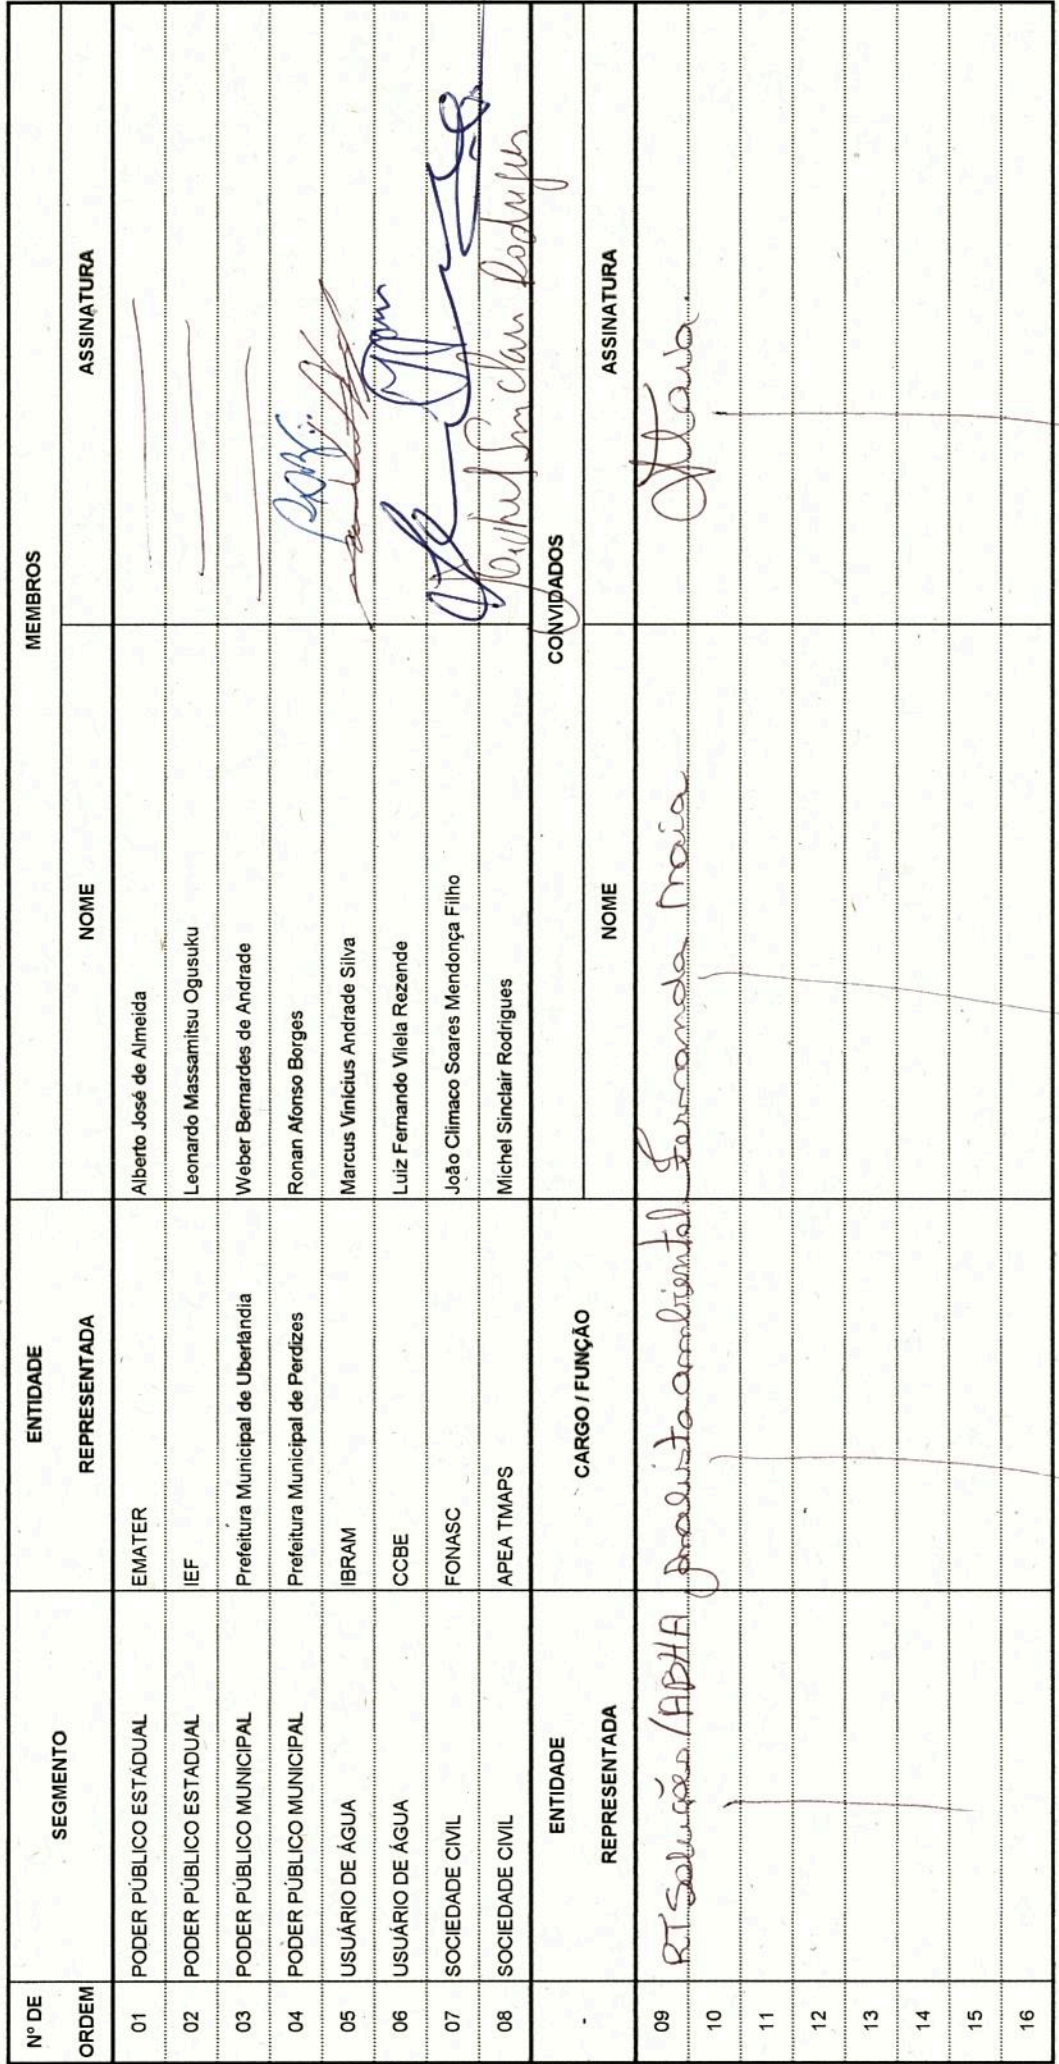 Nº DE ORDEM SEGMENTO ENTIDADE REPRESENTADA MEMBROS
NOME ASSINATURA
01 PODER PÚBLICO ESTADUAL EMATER Alberto José de Almeida
02 PODER PÚBLICO ESTADUAL IEF Leonardo Massamitsu Ogusuku
03 PODER PÚBLICO MUNICIPAL Prefeitura Municipal de Uberlândia Weber Bernardes de Andrade
04 PODER PÚBLICO MUNICIPAL Prefeitura Municipal de Perdizes Ronan Afonso Borges
05 USUÁRIO DE ÁGUA IBRAM Marcus Vinícius Andrade Silva
06 USUÁRIO DE ÁGUA CCBE Luiz Fernando Vilela Rezende
07 SOCIEDADE CIVIL FONASC João Climaco Soares Mendonça Filho
08 SOCIEDADE CIVIL APEA TMAPS Michel Sinclair Rodrigues Michel Sinclair Rodrigues
- ENTIDADE REPRESENTADA CARGO / FUNÇÃO CONVIDADOS
NOME ASSINATURA
09 RT Soluções/ABHA Analista ambiental Fernanda Maia
10
11
12
13
14
15
16